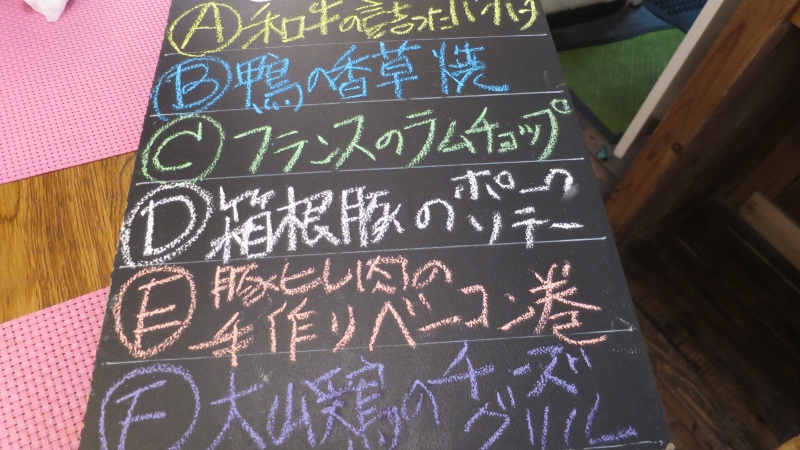 Ⓐ和牛の詰ったパイ
Ⓑ鴨の香草焼
Ⓒフランスのラムチョップ
Ⓓ箱根豚のポーク
ソテー
Ⓔ豚ヒレ肉の
手作りベーコン巻
Ⓕ大山鶏のチーズ
グリル